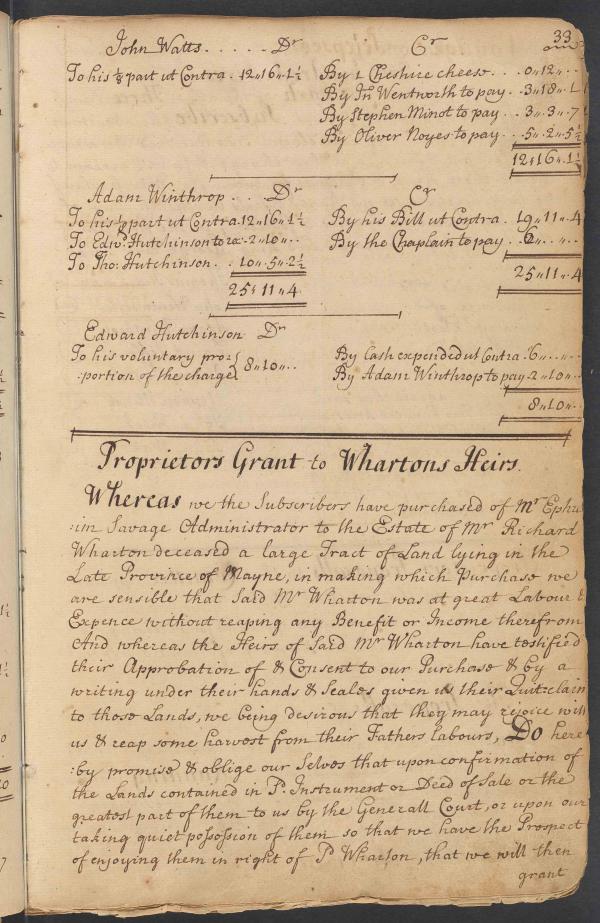 33
John Watts. . . . . . Dr Cr
To his ⅛ part ut Contra . 12〃16〃1½ By 1 Cheshire cheese. . . 0〃12〃. .
By Jn Wentworth to pay . . 3〃18〃1
By Stephen Minot to pay . . 3〃3〃7
By Oliver Noyes to pay . . 5〃2〃5½
12〃16〃1½
Adam Winthrop . . Dr Cr
To his ⅛ part ut Contra. 12〃16〃1½ By his Bill ut Contra . 19〃11〃4
To Edwd Hutchinson to re: 2〃10〃. . By the Chaplain to pay . . 6〃. . 〃. .
To Tho: Hutchinson . . 10〃5〃2½
25〃11〃4 25〃11〃4
Edward Hutchinson Dr
To his voluntary pro= 8〃10〃. . By Cash expended ut Contra . 6〃. . 〃. .
:portion of the charge By Adam Winthrop to pay 2〃10〃. .
8〃10〃. .
Proprietors Grant to Whartons Heirs.
Whereas we the Subscribers have purchased of Mr Ephra
:im Savage Administrator to the Estate of Mr Richard
Wharton deceased a large Tract of Land lying in the
Late Province of Mayne, in making which Purchase we
are sensible that Said Mr Wharton was at great Labour &
Expence without reaping any Benefit or Income therefrom
And whereas the Heirs of Said Mr Wharton have testified
their Approbation of & Consent to our Purchase & by a
writing under their hands & Seales given us their Quitclaim
to those Lands, we being desirous that they may rejoice with
us & reap some harvest from their Fathers labours, Do here
:by promise & oblige our Selves that upon confirmation of
the Lands contained in Sd. Instrument or Deed of Sale or the
greatest part of them to us by the Generall Court, or upon our
taking quiet possession of them so that we have the Prospect
of enjoying them in right of Sd Wharton, that we will then
grant